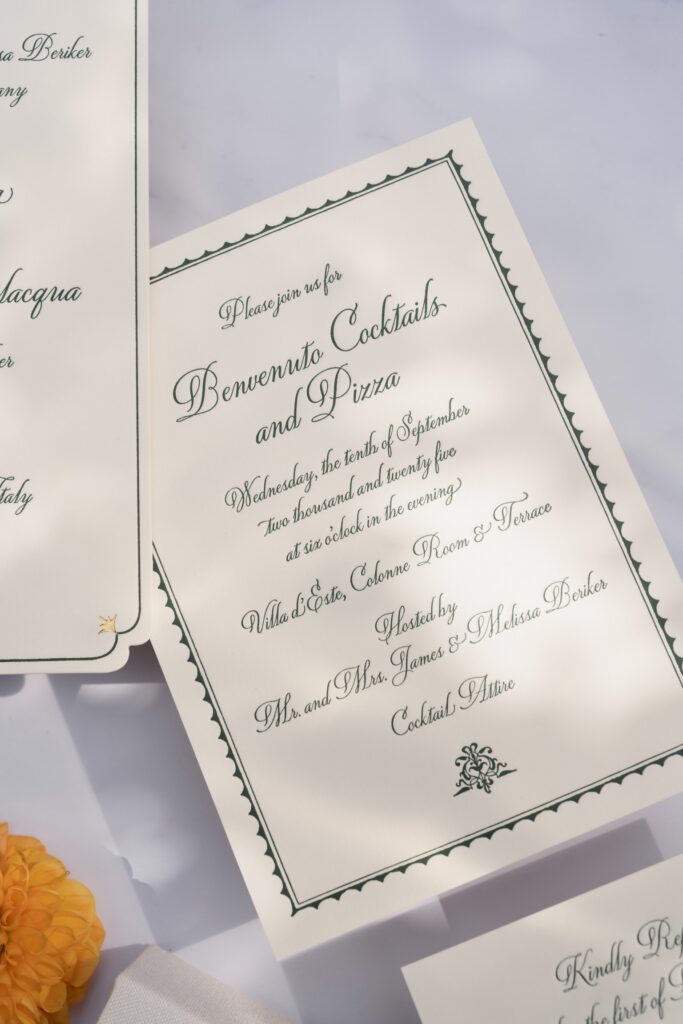 Beriker
Please join us for
Benvenuto Cocktails
and Pizza
Wednesday, the tenth of September
two thousand and twenty five
at six o'clock in the evening
Villa d'Este, Colonne Room & Terrace
Hosted by
Mr. and Mrs. James & Melissa Beriker
Cocktail Attire
Kindly
the first of